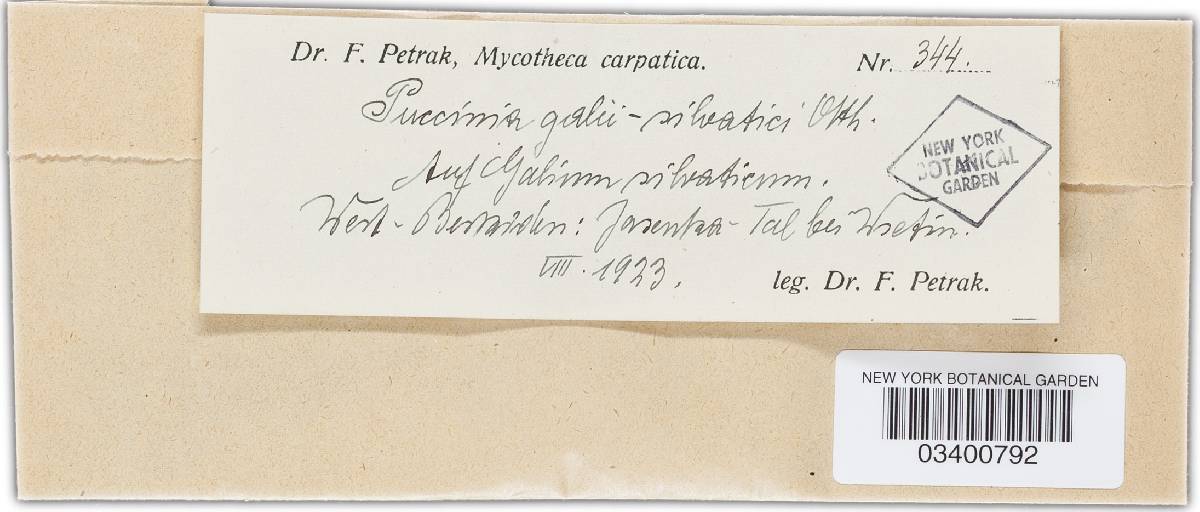 Dr. F. Petrak, Mycotheca carpatica. Nr. 344.
Puccinia galii-silvatici Otth.
Auf Galium silvaticum.
West-Beskiden: Jasenka-Tal bei Wsetin.
VIII. 1923.
leg. Dr. F. Petrak.
NEW YORK
BOTANICAL
GARDEN
NEW YORK BOTANICAL GARDEN
03400792